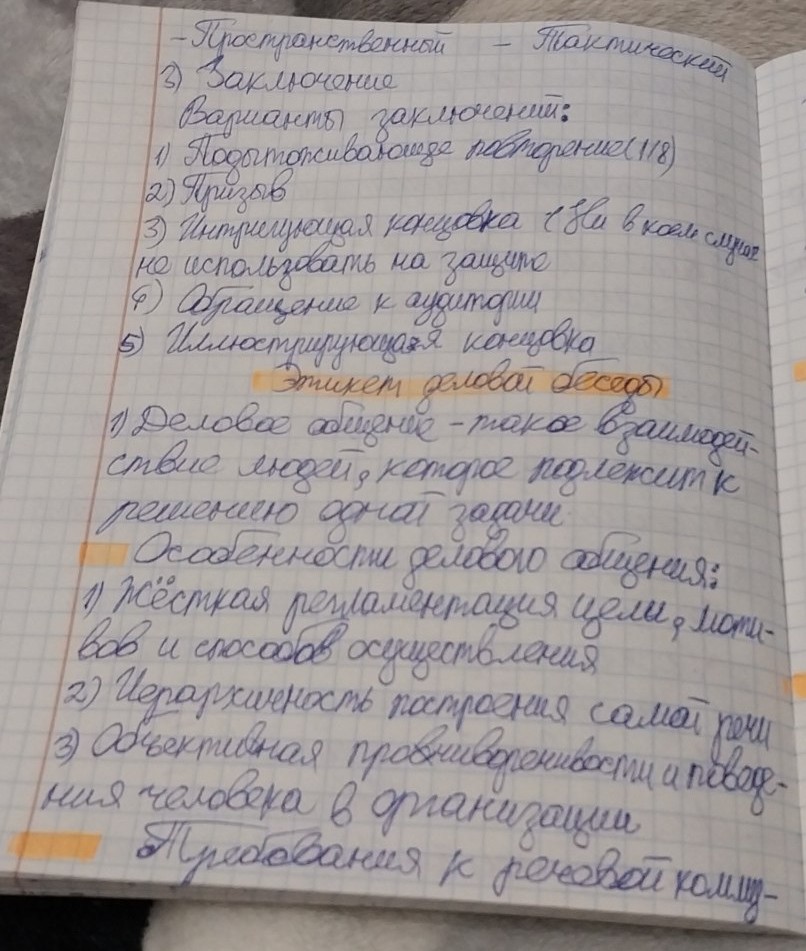 - Пространственный - Тактический
3) Заключение
Варианты заключений:
1) Подытоживающее повторение (1/8)
2) Призыв
3) Интригующая концовка (Ни в коем случае
не использовать на защите
4) Обращение к аудитории
5) Иллюстрирующая концовка
Этикет деловой беседы
1) Деловое общение - такое взаимодей-
ствие людей, которое подлежит к
решению одной задачи
Особенности делового общения:
1) Жёсткая регламентация цели, моти-
вов и способов осуществления
2) Иерархичность построения самой речи
3) Объективная и поведе-
ния человека в организации
Требования к речевой комму-